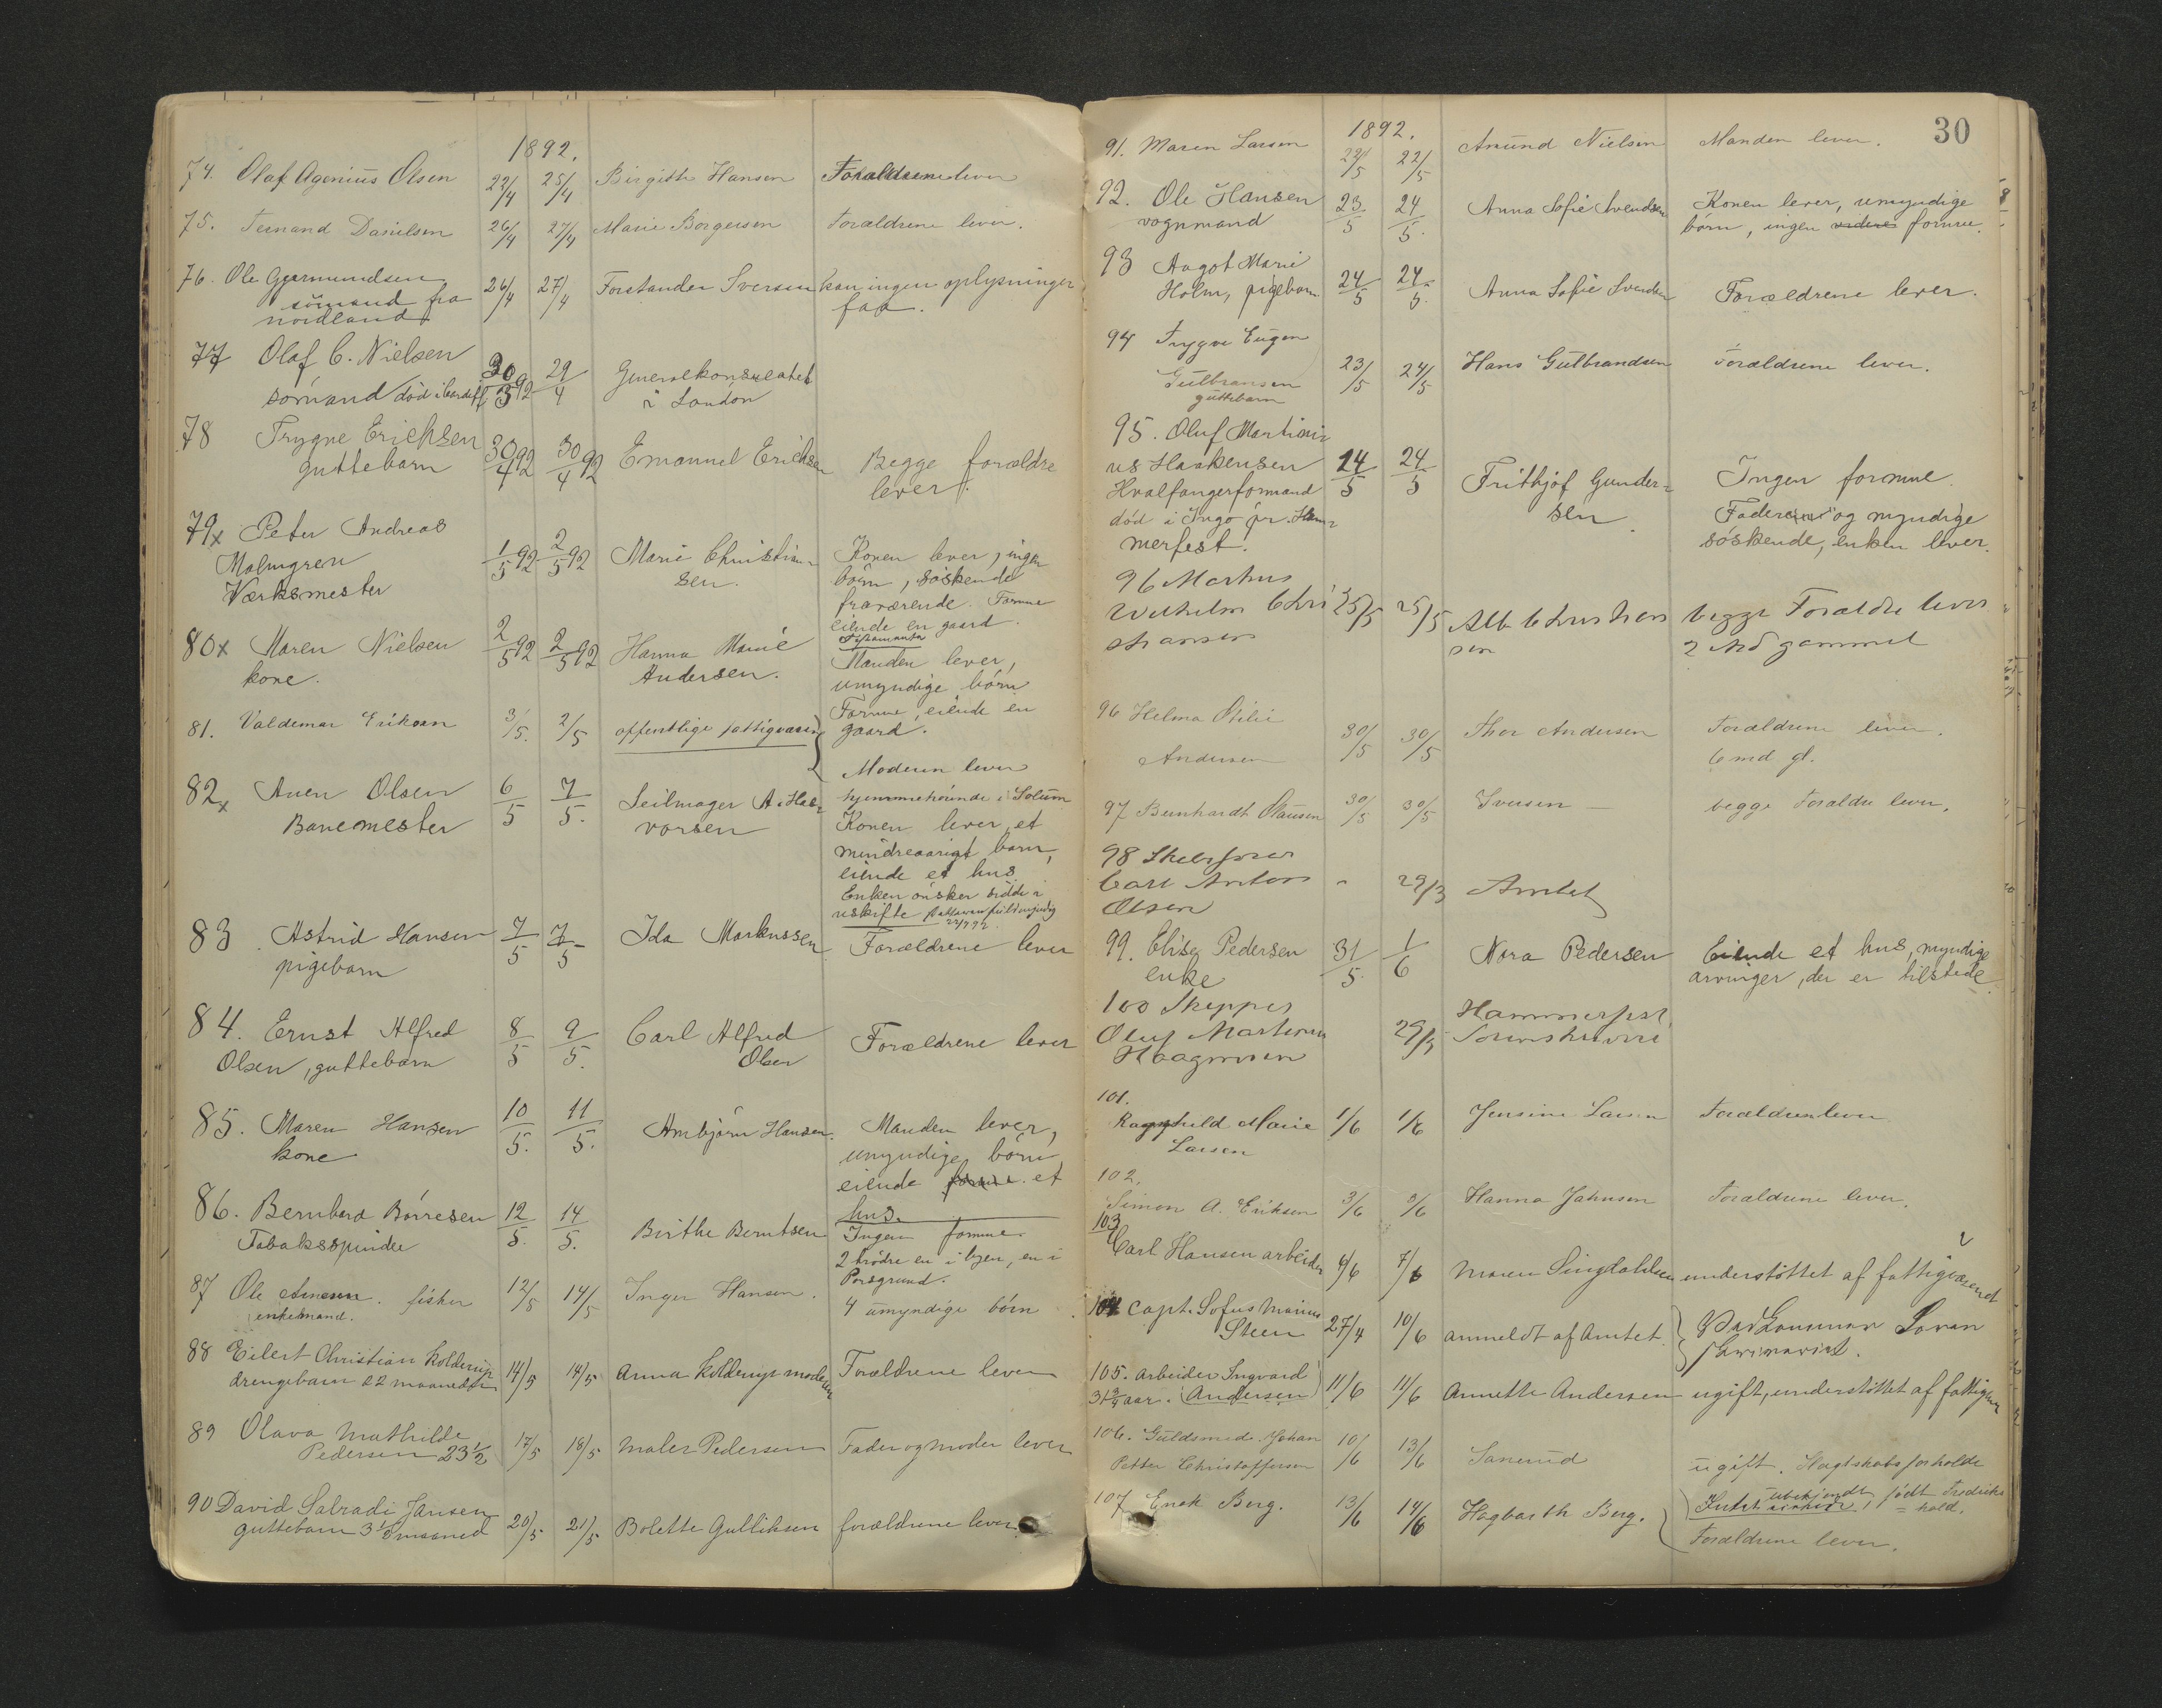 1892.
74. Olaf Agenius Olsen 22/4 25/4 Birgitte Hansen Forældrene lever
75. Fernand Danielsen 26/4 27/4 Marie Borgersen Forældrene lever.
76. Ole Gjermundsen 26/4 27/4 Forstander Iversen kan ingen oplysninger
sömand fra faa.
nordland
77 Olaf C. Nielsen 30/3 92 29/4 Generalkonsulatet
sömand död i Cardiff i London
78 Trygve Erichsen 30/4 92 30/4 92 Emanuel Erichsen Begge forældre
guttebarn lever.
79x Peter Andreas
Malmgren 1/5 92 2/5 92 Marie Christian- Konen lever, ingen
Værksmester sen. börn, söskende
fraværende. Formue
eiende en gaard.
Testamente
80x Maren Nielsen 2/5 92 2/5 92 Hanna Marie Manden lever,
kone. Andersen. umyndige börn
Formue, eiende en
gaard.
81. Valdemar Eriksen 3/5. 2/5 offentlige fattigvæsen
Moderen lever
hjemmehörende i Solum
82x Auen Olsen 6/5 7/5. Seilmager A. Hal- Konen lever, et
Banemester vorsen mindreaarigt barn,
eiende et hus
Enken önsker sidde i
uskifte
83. Astrid Hansen 7/5 7/5 Ida Markussen Forældrene lever
pigebarn
84. Ernst Alfred 8/5 9/5. Carl Alfred Forældrene lever
Olsen, guttebarn Olsen
85. Maren Hansen 10/5. 11/5. Arnbjörn Hansen. Manden lever,
kone umyndige börn
eiende et
hus.
86. Bernhard Börresen 12/5. 14/5. Birthe Berntsen Ingen formue
Tobaksspinder 2 brödre en i byen, en i
Porsgrund.
87 Ole Arnesen. fisker 12/5 14/5 Inger Hansen. 4 umyndige börn
enkemand.
88 Eilert Christian Kolderup 14/5 14/5 Anna Kolderup moderen Forældrene lever
drengebarn 22 maaneder
89 Olava Mathilde
Pedersen 23 1/2 17/5 18/5 Maler Pedersen Fader og moder lever
90 David Salvadi Jansen
guttebarn 3 1/2 maaned 20/5 21/5 Bolette Gulliksen forældrene lever.
30
1892.
91. Maren Larsen 22/5 22/5 Amund Nielsen Manden lever.
92. Ole Hansen 23/5 24/5. Anna Sofie Svendsen Konen lever, umyndige
vognmand börn, ingen videre formue.
93 Aagot Marie
Holm, pigebarn 24/5 24/5. Anna Sofie Svendsen Forældrene lever.
94 Trygve Eugen
Gulbransen 23/5 24/5 Hans Gulbrandsen Forældrene lever.
guttebarn
95. Oluf Martini-
us Haakensen 24/5 24/5 Frithjof Gunder- Ingen formue.
Hvalfangerformand sen Fader og myndige
död i Ingö pr. Ham- söskende, enken lever.
merfest.
96 Markus
Wilhelm Chri 25/5 25/5 Alb Christian begge Forældre lever
stiansen sen 2 Md gammel
96 Helma Otilie 30/5 30/5 Thor Andersen Forældrene lever.
Andersen 6 md gl.
97 Bernhardt Clausen 30/5 30/5 Iversen — begge Forældre lever.
98 Skibsförer
Carl Anton " 29/3 Amtet
Olsen
99. Elise Pedersen 31/5. 1/6 Nora Pedersen Eiende et hus, myndige
enke arvinger, der er tilstede
100 Skipper
Oluf Martinus 29/5 Hammerfest
Haagensen Sorenskriveri
101.
Ragnhild Marie 1/6 1/6 Jensine Larsen Forældrene lever
Larsen
102.
Simon A. Eriksen 3/6 3/6 Hanna Johnsen Forældrene lever.
103
Carl Hansen arbeider 6/6 7/6 Maren understöttet af fattigvæsenet
104 Capt. Sofus Marius
Steen 27/4 10/6 anmeldt af Amtet.
105. arbeider Ingvard
31 3/4 aar. Andersen 11/6 11/6 Annette Andersen ugift, understöttet af fattigvæs
106. Guldsmed Johan 10/6 13/6 Sanerud ugift. Slegtskabsforholde
Petter Christoffersen ubekjendt födt Fredriks-
hald.
107 Enok Berg. 13/6 14/6 Hagbarth Berg. Forældrene lever.